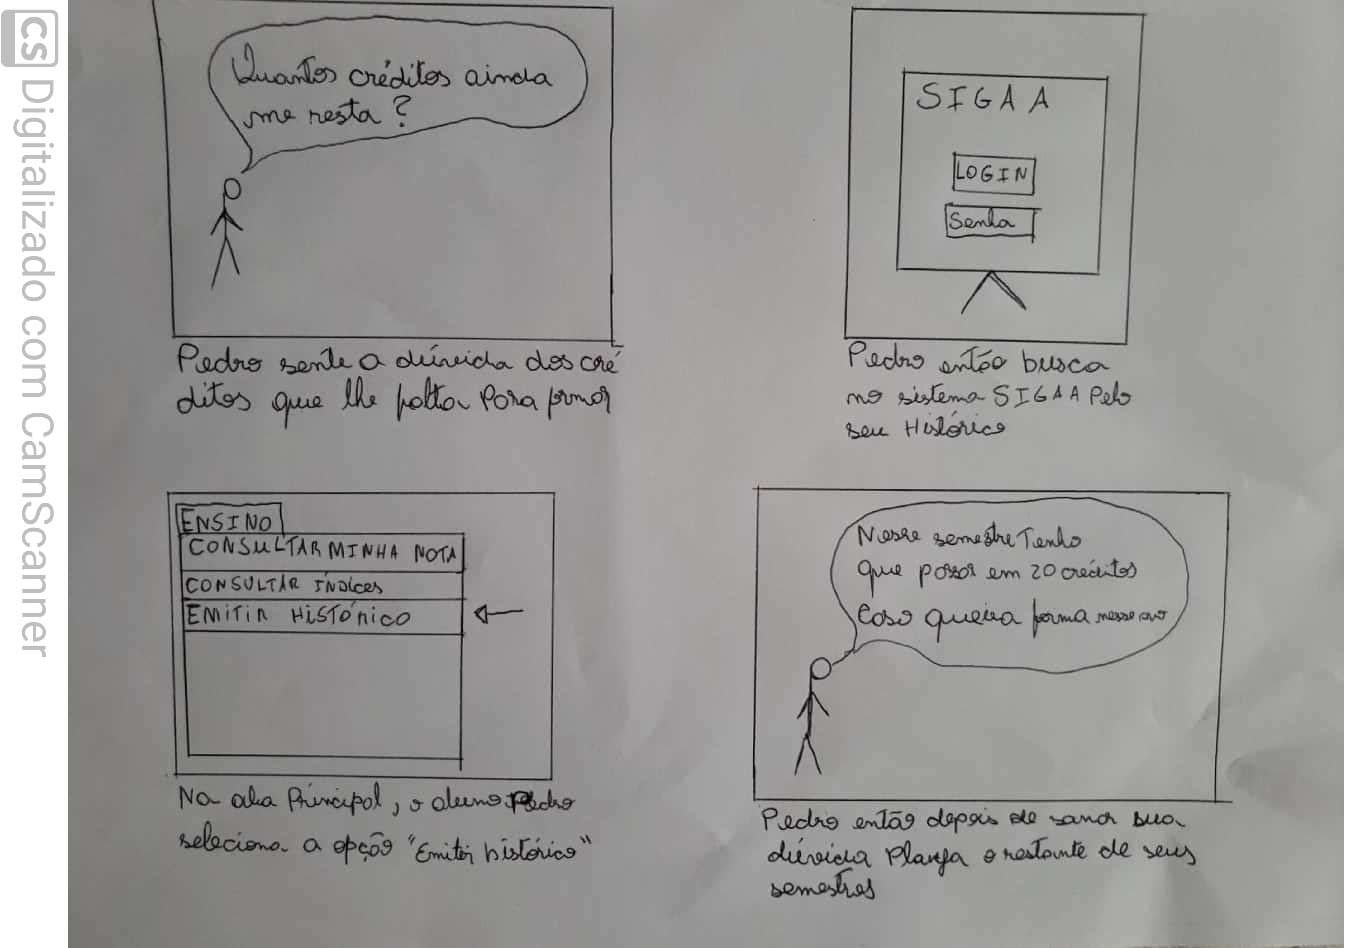 CS Digitalizado com CamScanner
Quantos créditos ainda
me resta?
Pedro sente a dúvida dos cré
ditos que lhe falta para formar
SIGAA
LOGIN
Senha
Pedro então busca
no sistema SIGAA Pelo
seu Histórico
ENSINO
CONSULTAR MINHA NOTA
CONSULTAR ÍNDICES
EMITIR HISTÓRICO
Na aba Principal, o aluno Pedro
seleciona a opção "Emitir histórico"
Nesse semestre Tenho
que passar em 20 créditos
Caso queira forma nesse ano
Pedro então depois de sanar sua
dúvida Planeja o restante de seus
semestres